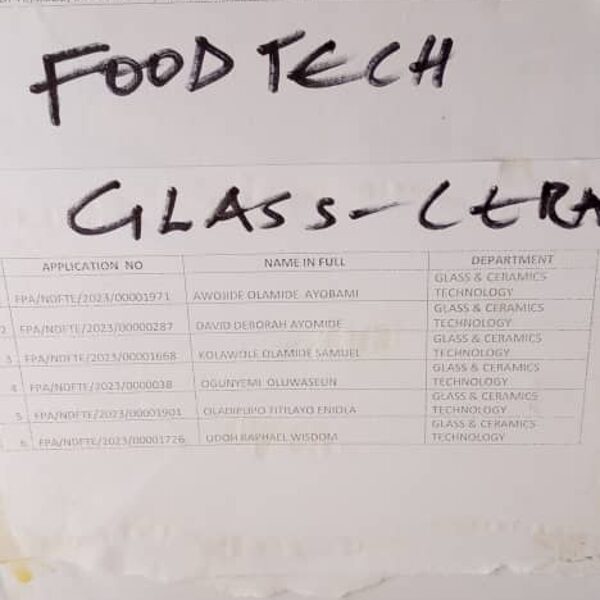 FOOD TECH
GLASS-CERA
APPLICATION NO NAME IN FULL DEPARTMENT
FPA/NDFTE/2023/00001971 AWOJIDE OLAMIDE AYOBAMI GLASS & CERAMICS TECHNOLOGY
2 FPA/NDFTE/2023/00000287 DAVID DEBORAH AYOMIDE GLASS & CERAMICS TECHNOLOGY
3 FPA/NDFTE/2023/00001668 KOLAWOLE OLAMIDE SAMUEL GLASS & CERAMICS TECHNOLOGY
4 FPA/NDFTE/2023/0000038 OGUNYEMI OLUWASEUN GLASS & CERAMICS TECHNOLOGY
5 FPA/NDFTE/2023/00001901 OLADIPUPO TITILAYO ENIOLA GLASS & CERAMICS TECHNOLOGY
6 FPA/NDFTE/2023/00001726 UDOH RAPHAEL WISDOM GLASS & CERAMICS TECHNOLOGY